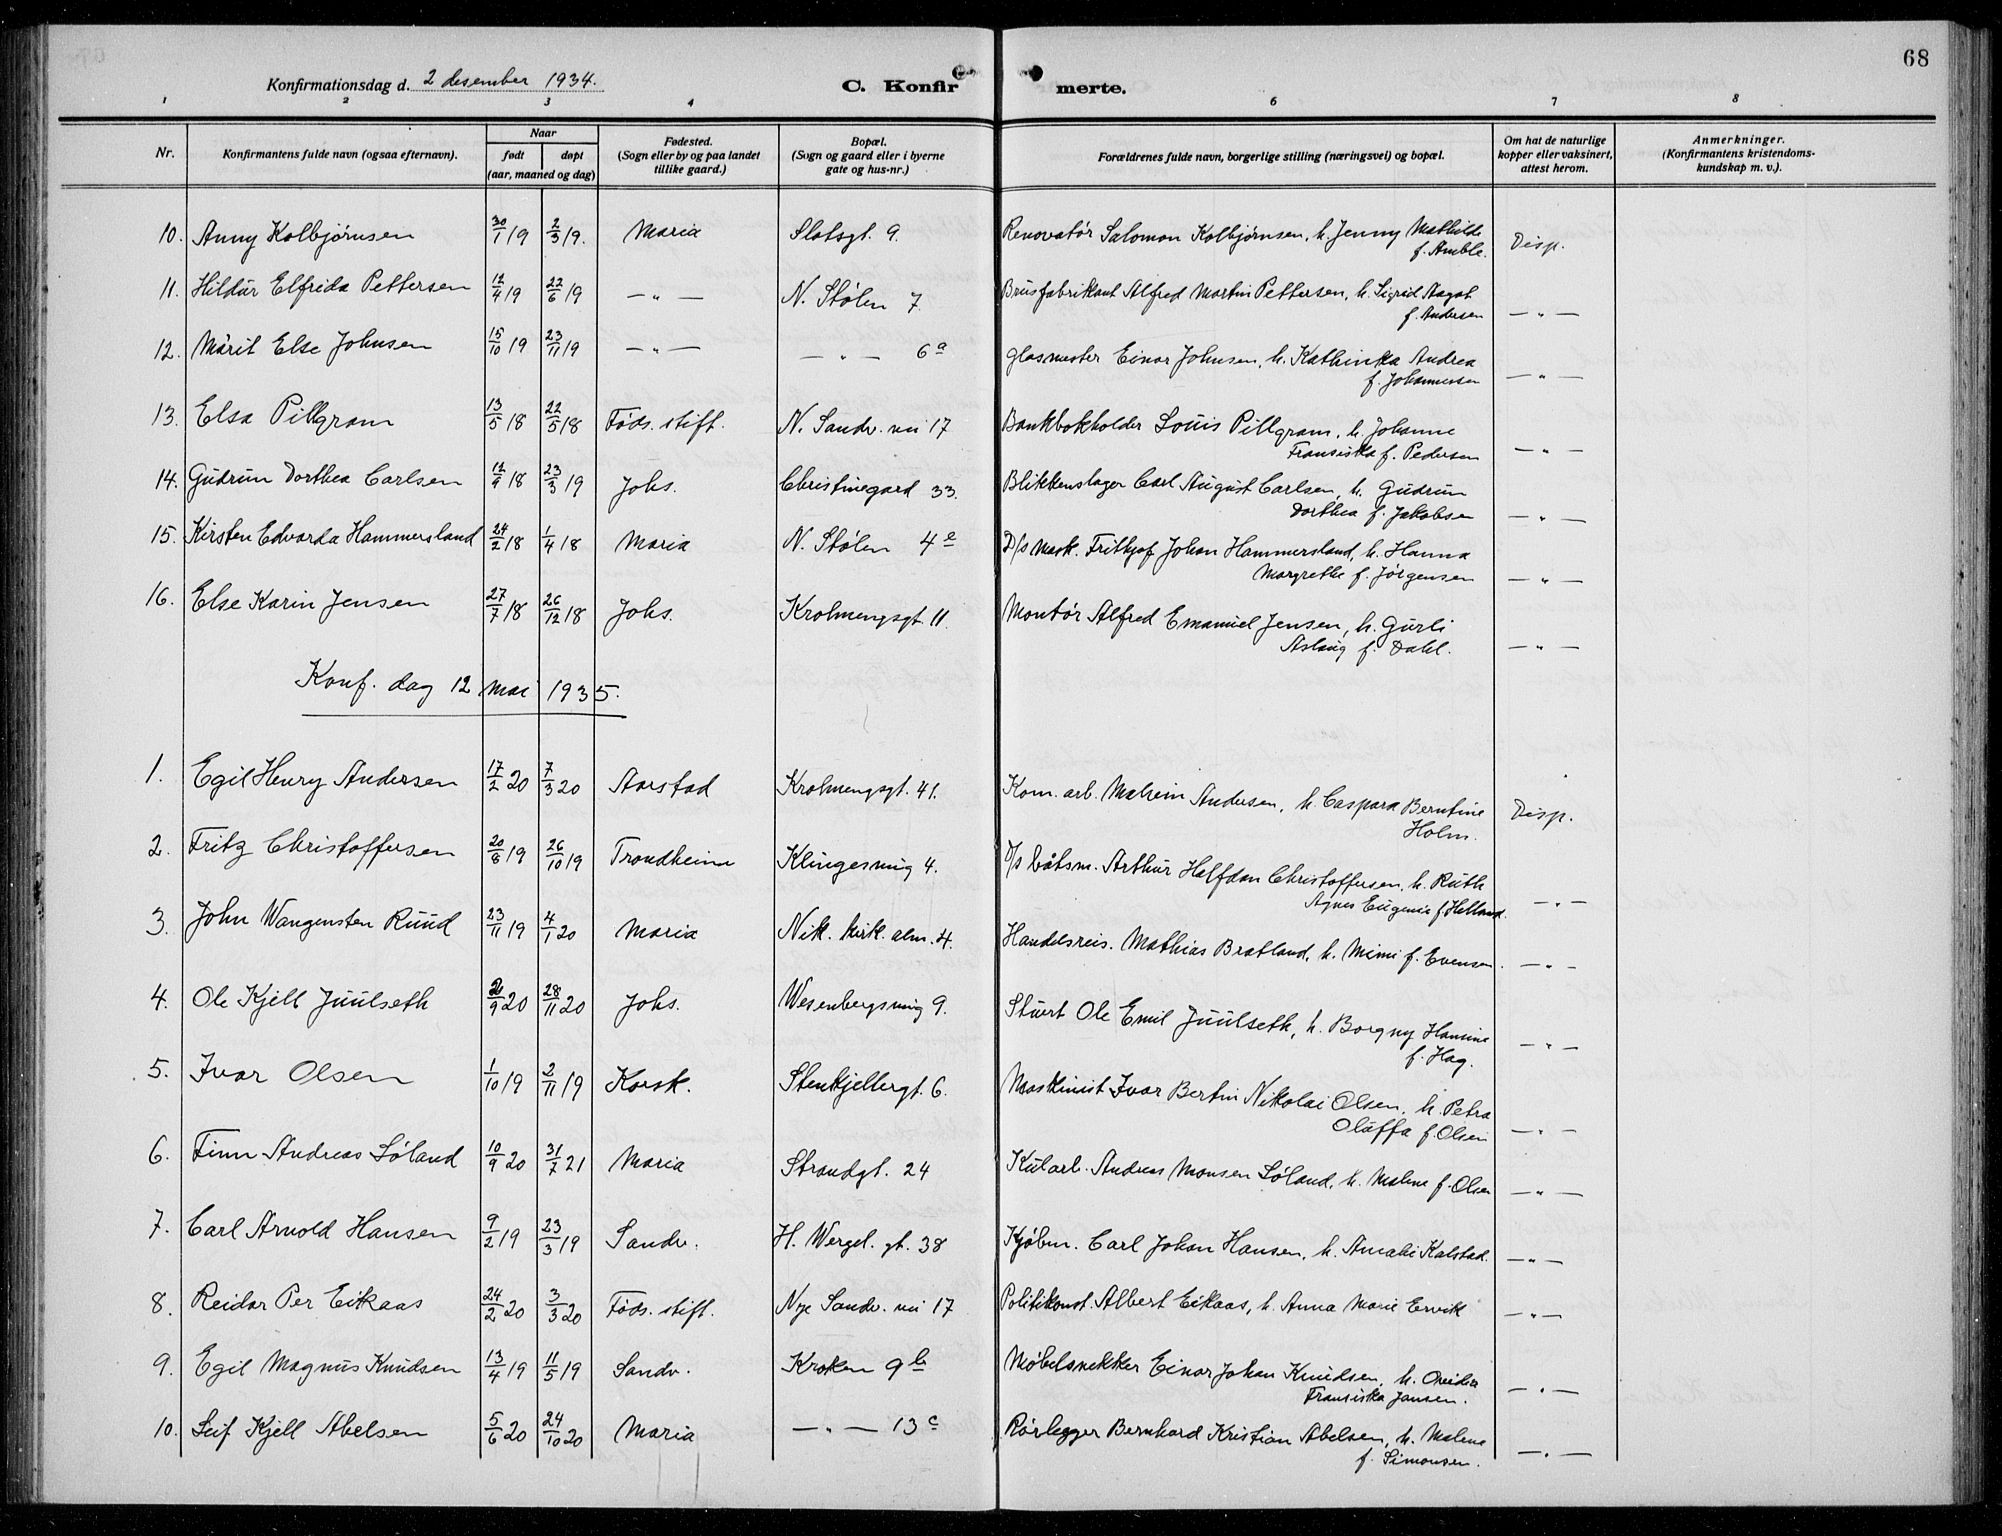 68
Konfirmationsdag d. 2 desember 1934.
C. Konfirmerte.
1 2 3 4 6 7 8
Nr.
Konfirmantens fulde navn (ogsaa efternavn).
Naar
født døpt
(aar, maaned og dag)
Fødested.
(Sogn eller by og paa landet
tillike gaard.)
Bopæl.
(Sogn og gaard eller i byerne
gate og hus-nr.)
Forældrenes fulde navn, borgerlige stilling (næringsvei) og bopæl.
Om hat de naturlige
kopper eller vaksinert,
attest herom.
Anmerkninger.
(Konfirmantens kristendoms-
kundskap m. v.).
10. Anny Kolbjørnsen 30/1 19 2/3 19. Maria Slotsgt. 9. Renovatør Salomon Kolbjørnsen, h. Jenny Mathilde
f. Amble. Disp.
11. Hildur Elfrida Pettersen 12/4 19 22/6 19 — " — N. Stølen 7. Brusfabrikant Alfred Martin Pettersen, h. Sigrid Aagot
f. Andersen — " —
12. Márit Else Johnsen 15/10 19 23/11 19 — " — — " — 6a Glasmester Einar Johnsen, h. Kathinka Andrea
f. Johannessen — " —
13. Elsa Pillgram 13/5 18 22/5 18 Føds. stift. N. Sandv. vei 17 Bankbokholder Louis Pillgram, h. Johanne
Fransiska f. Pedersen — " —
14. Gudrun Dorthea Carlsen 12/9 18 23/3 19 Johs. Christinegard 33. Blikkenslager Carl August Carlsen, h. Gudrun
Dorthea f. Jakobsen — " —
15. Kirsten Edvarda Hammersland 24/2 18 1/4 18 Maria N. Stølen 4e D/s mask. Frithjof Johan Hammersland, h. Hanna
Margrethe f. Jørgensen — " —
16. Else Karin Jensen 27/7 18 26/12 18 Johs. Krohnengsgt. 11. Montør Alfred Emanuel Jensen, h. Gurli
Aslaug f. Dahl. — " —
Konf. dag 12 mai 1935.
1. Egil Henry Andersen 17/2 20 7/3 20 Aarstad Krohnengsgt. 41. Kom. arb. Andersen, h. Caspara Berntine
Holm. Disp.
2. Fritz Christoffersen 20/8 19 26/10 19 Trondheim Klingesmug 4. D/s båtsm. Arthur Halfdan Christoffersen, h. Ruth
Agnes Eugenie f. Helland. — " —
3. John Wangensten Ruud 23/11 19 4/1 20 Maria Nik. kirk. alm. 4. Handelsreis. Mathias Bratland, h. Mimi f. Evensen. — " —
4. Ole Kjell Juulseth 2/9 20 28/11 20 Johs. Wesenbergsmug 9. Stuert Ole Emil Juulseth, h. Borgny Hansine
f. Hag. — " —
5. Ivar Olsen 1/10 19 2/11 19 Korsk. Stenkjellergt. 6. Maskinist Ivar Bertin Nikolai Olsen, h. Petra
Olaffa f. Olsen — " —
6. Finn Andreas Søland 10/9 20 31/7 21 Maria Strandgt. 24 Kularb. Andreas Monsen Søland, h. Malene f. Olsen — " —
7. Carl Arnold Hansen 9/2 19 23/3 19 Sandv. H. Wergel. gt. 38 Kjøbm. Carl Johan Hansen, h. Amalie Kalstad. — " —
8. Reidar Per Eikaas 24/2 20 3/3 20 Føds. stift. Nye Sandv. vei 17 Politikonst. Albert Eikaas, h. Anna Marie Ervik — " —
9. Egil Magnus Knudsen 13/4 19 11/5 19 Sandv. Kroken 9b Møbelsnekker Einar Johan Knudsen, h.
Fransiska Jansen. — " —
10. Leif Kjell Abelsen 5/6 20 24/10 20 Maria — " — 13c Rørlegger Bernhard Kristian Abelsen, h. Malene
f. Simonsen. — " —